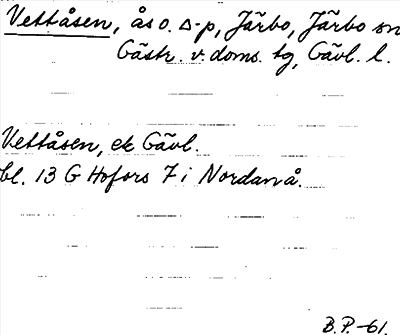 Vettåsen, ås o. Δ-p, Järbo, Järbo sn
Gästr. v. doms. tg, Gävl. l.
Vettåsen, ek Gävl.
bl. 13 G Hofors 7 i Nordanå.
B.P.-61.